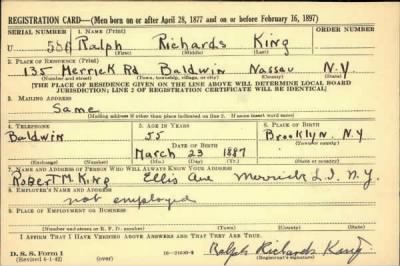 REGISTRATION CARD—(Men born on or after April 28, 1877 and on or before February 16, 1897)
SERIAL NUMBER 1. NAME (Print) ORDER NUMBER
U 586 Ralph Richards King
(First) (Middle) (Last)
2. PLACE OF RESIDENCE (Print)
135 Merrick Rd Baldwin Nassau N.Y
(Number and street) (Town, township, village, or city) (County) (State)
[THE PLACE OF RESIDENCE GIVEN ON THE LINE ABOVE WILL DETERMINE LOCAL BOARD
JURISDICTION; LINE 2 OF REGISTRATION CERTIFICATE WILL BE IDENTICAL]
3. MAILING ADDRESS
Same
[Mailing address if other than place indicated on line 2. If same insert word same]
4. TELEPHONE 5. AGE IN YEARS 6. PLACE OF BIRTH
Baldwin 55 Brooklyn. N.Y
DATE OF BIRTH (Town or county)
March 23 1887
(Exchange) (Number) (Mo.) (Day) (Yr.) (State or country)
7. NAME AND ADDRESS OF PERSON WHO WILL ALWAYS KNOW YOUR ADDRESS
Robert M. King Ellis Ave Merrick L.I. N.Y.
8. EMPLOYER'S NAME AND ADDRESS
not employed
9. PLACE OF EMPLOYMENT OR BUSINESS
(Number and street or R. F. D. number) (Town) (County) (State)
I AFFIRM THAT I HAVE VERIFIED ABOVE ANSWERS AND THAT THEY ARE TRUE.
D. S. S. Form 1 Ralph Richards King
(Revised 4-1-42) (over) (Registrant's signature)